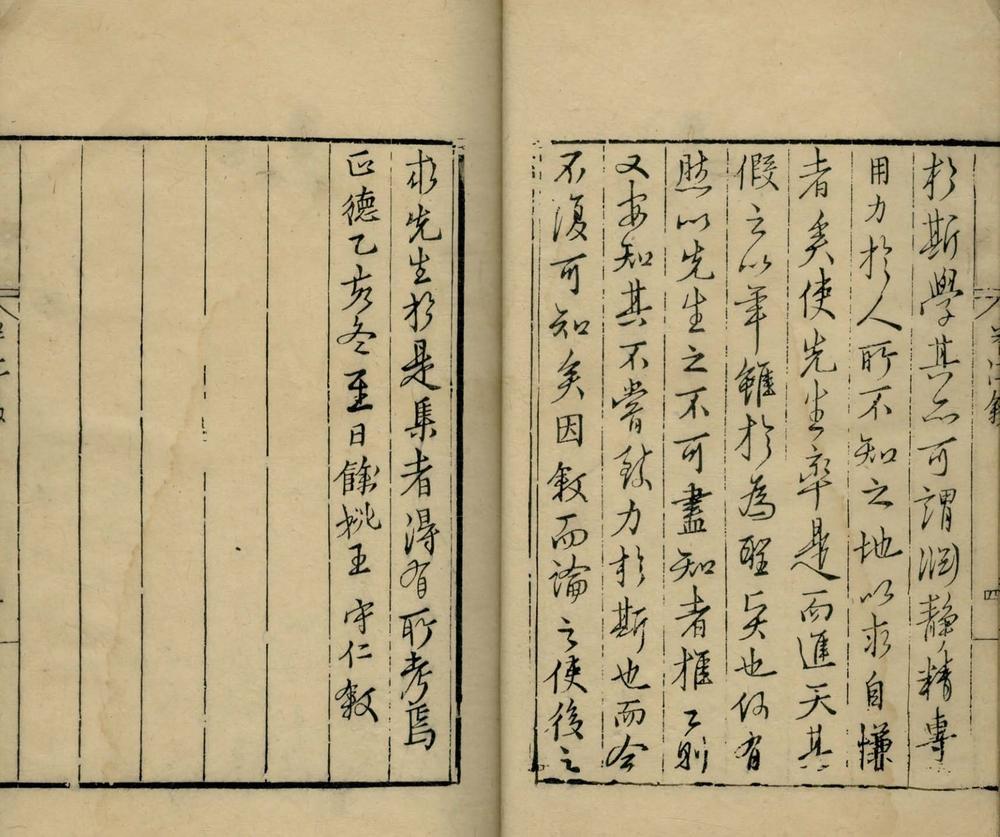 於斯學其亦可謂淵靜精專
用力於人所不知之地以求自慊
者矣使先生率是而進天其
假之以年雖於為聖賢也何有
然以先生之不可盡知者推之則
又安知其不嘗致力於斯也而今
不復可知矣因敘而論之使後之
求先生於是集者得有所考焉
正德乙亥冬至日餘姚王守仁敘
四